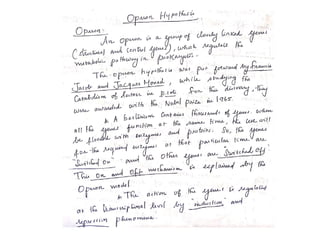 Operon Hypothesis
Operon:-
An operon is a group of closely linked genes
(structural and control genes), which regulates the
metabolic pathway in prokaryotes.
The operon hypothesis was put forward by Francis
Jacob and Jacques Monod, while studying the
Catabolism of lactose in E.coli. For this discovery, they
were awarded with the Nobel prize in 1965.
* A bacterium contains thousands of genes. When
all the genes function at the same time, the cell will
be flooded with enzymes and proteins. So, the genes
for the required enzymes at that particular time are
"Switched on" and the other genes are Switched off.
This on and off mechanism is explained by the
Operon model.
* The action of the genes is regulated
at the transcriptional level by induction and
repression phenomena.